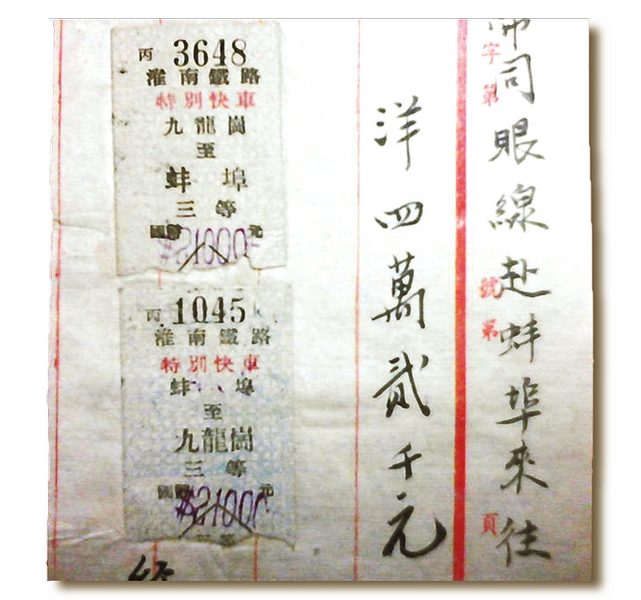 同眼線赴蚌埠來往
字第 號第 頁
洋四萬貳千元
丙 3648
淮南鐵路
特別快車
九龍崗
至
蚌埠
三等
國幣 $21000 元
丙 1045
淮南鐵路
特別快車
蚌埠
至
九龍崗
三等
國幣 $21000 元